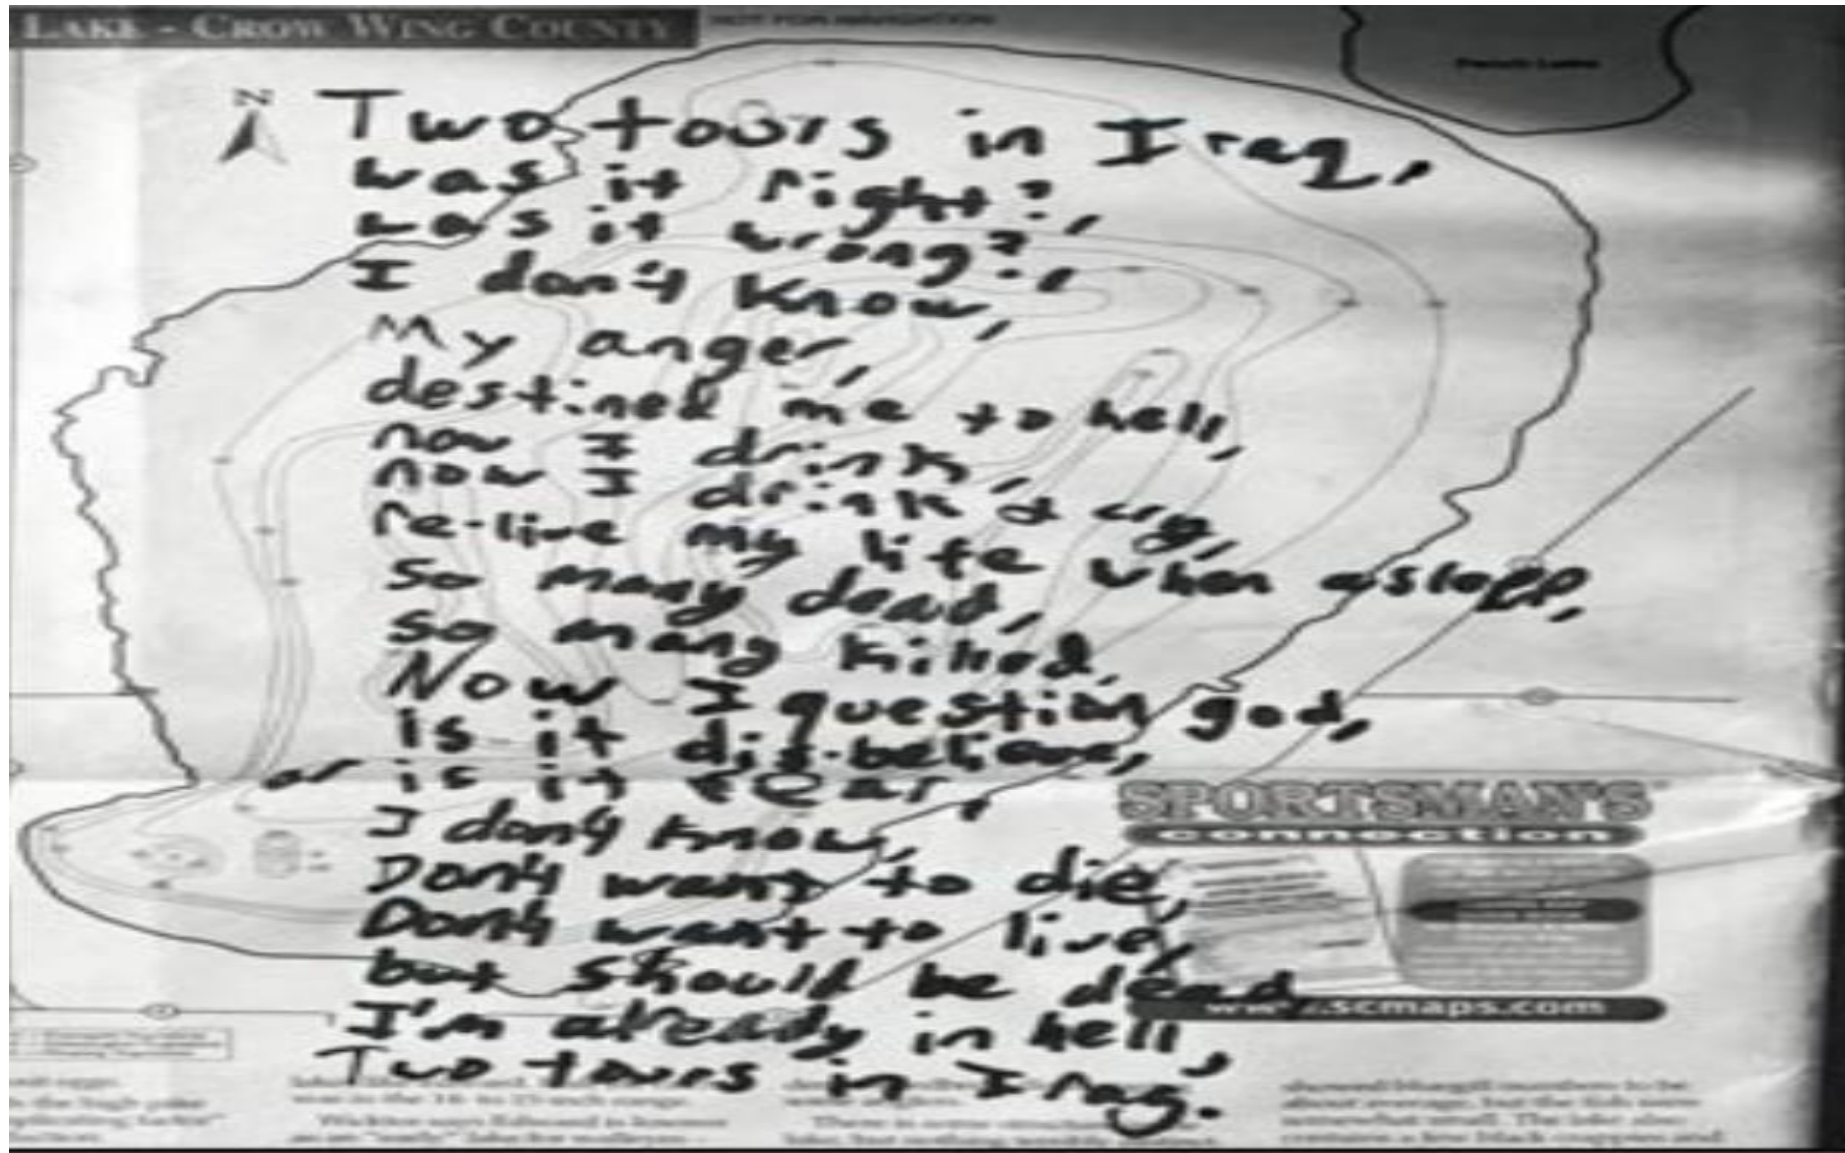 LAKE - CROW WING COUNTY
NOT FOR NAVIGATION
N
Two tours in Iraq,
was it right?,
was it wrong?,
I don't know,
My anger,
destined me to hell,
now I drink,
now I drink & cry,
re-live my life when asleep,
so many dead,
so many killed,
Now I question god,
is it dis-believe,
or is it fear,
I don't know,
Don't want to die,
Don't want to live,
but should be dead,
I'm already in hell,
Two tours in Iraq.
SPORTSMAN'S
connection
www.scmaps.com